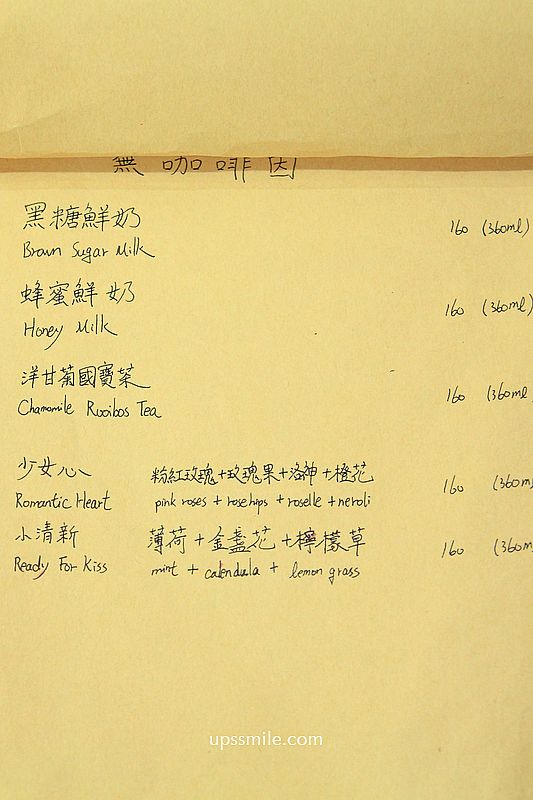 無咖啡因
黑糖鮮奶 160 (360ml)
Brown Sugar Milk
蜂蜜鮮奶 160 (360ml)
Honey Milk
洋甘菊國寶茶 160 (360ml
Chamomile Rooibos Tea
少女心 粉紅玫瑰+玫瑰果+洛神+橙花 160 (360m
Romantic Heart pink roses + rosehips + roselle + neroli
小清新 薄荷+金盞花+檸檬草 160 (360m
Ready For Kiss mint + calendula + lemon grass
upssmile.com